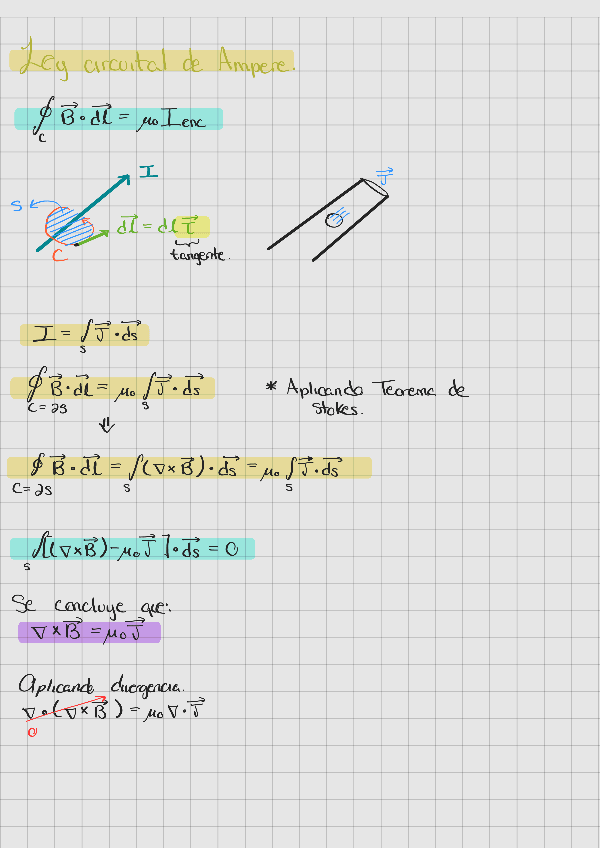 Ley circuital de Ampere.
∮_C B⃗ · dl⃗ = μ₀ I enc
I
S
dl⃗ = dl T⃗
C
tangente.
J⃗
I = ∫_S J⃗ · ds⃗
∮_{C=∂S} B⃗ · dl⃗ = μ₀ ∫_S J⃗ · ds⃗
* Aplicando Teorema de
Stokes.
⇓
∮_{C=∂S} B⃗ · dl⃗ = ∫_S (∇×B⃗) · ds⃗ = μ₀ ∫_S J⃗ · ds⃗
∫_S [(∇×B⃗) - μ₀ J⃗] · ds⃗ = 0
Se concluye que:
∇×B⃗ = μ₀ J⃗
Aplicando divergencia.
∇ · (∇×B⃗) = μ₀ ∇ · J⃗
0